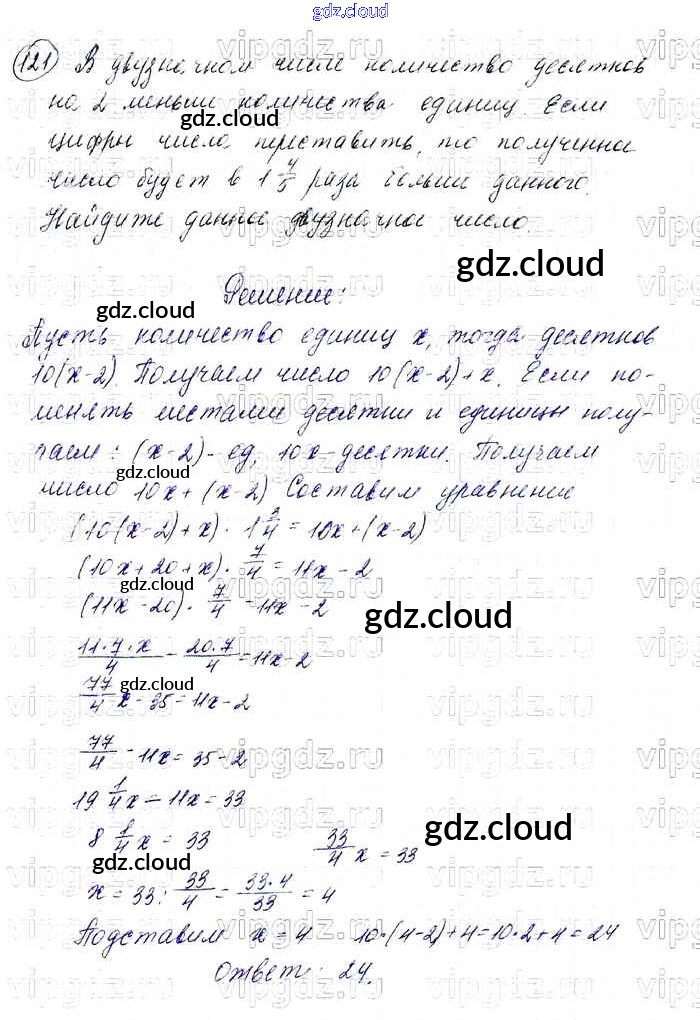 gdz.cloud
121 В двузначном числе количество десятков
на 2 меньше количества единиц. Если
gdz.cloud
цифры числа переставить, то полученное
число будет в 1 4/5 раза больше данного.
Найдите данное двузначное число.
gdz.cloud
Решение:
gdz.cloud
Пусть количество единиц x, тогда десятков
10(x-2). Получаем число 10(x-2)+x. Если по-
менять местами десятки и единицы полу-
чаем: (x-2)-ед, 10x-десятки. Получаем
gdz.cloud
число 10x+(x-2) Составим уравнение
(10(x-2)+x)·1 3/4=10x+(x-2)
(10x+20+x)·7/4=11x-2
gdz.cloud
(11x-20)·7/4=11x-2
gdz.cloud
11·7·x/4-20·7/4=11x-2
gdz.cloud
77/4 x-35=11x-2
77/4-11x=35-2
19 1/4x-11x=33
8 1/4x=33 33/4 x=33
gdz.cloud
gdz.cloud
x=33:33/4=33·4/33=4
Подставим x=4 10·(4-2)+4=10·2+4=24
Ответ: 24.
gdz.cloud
vipgdz.ru